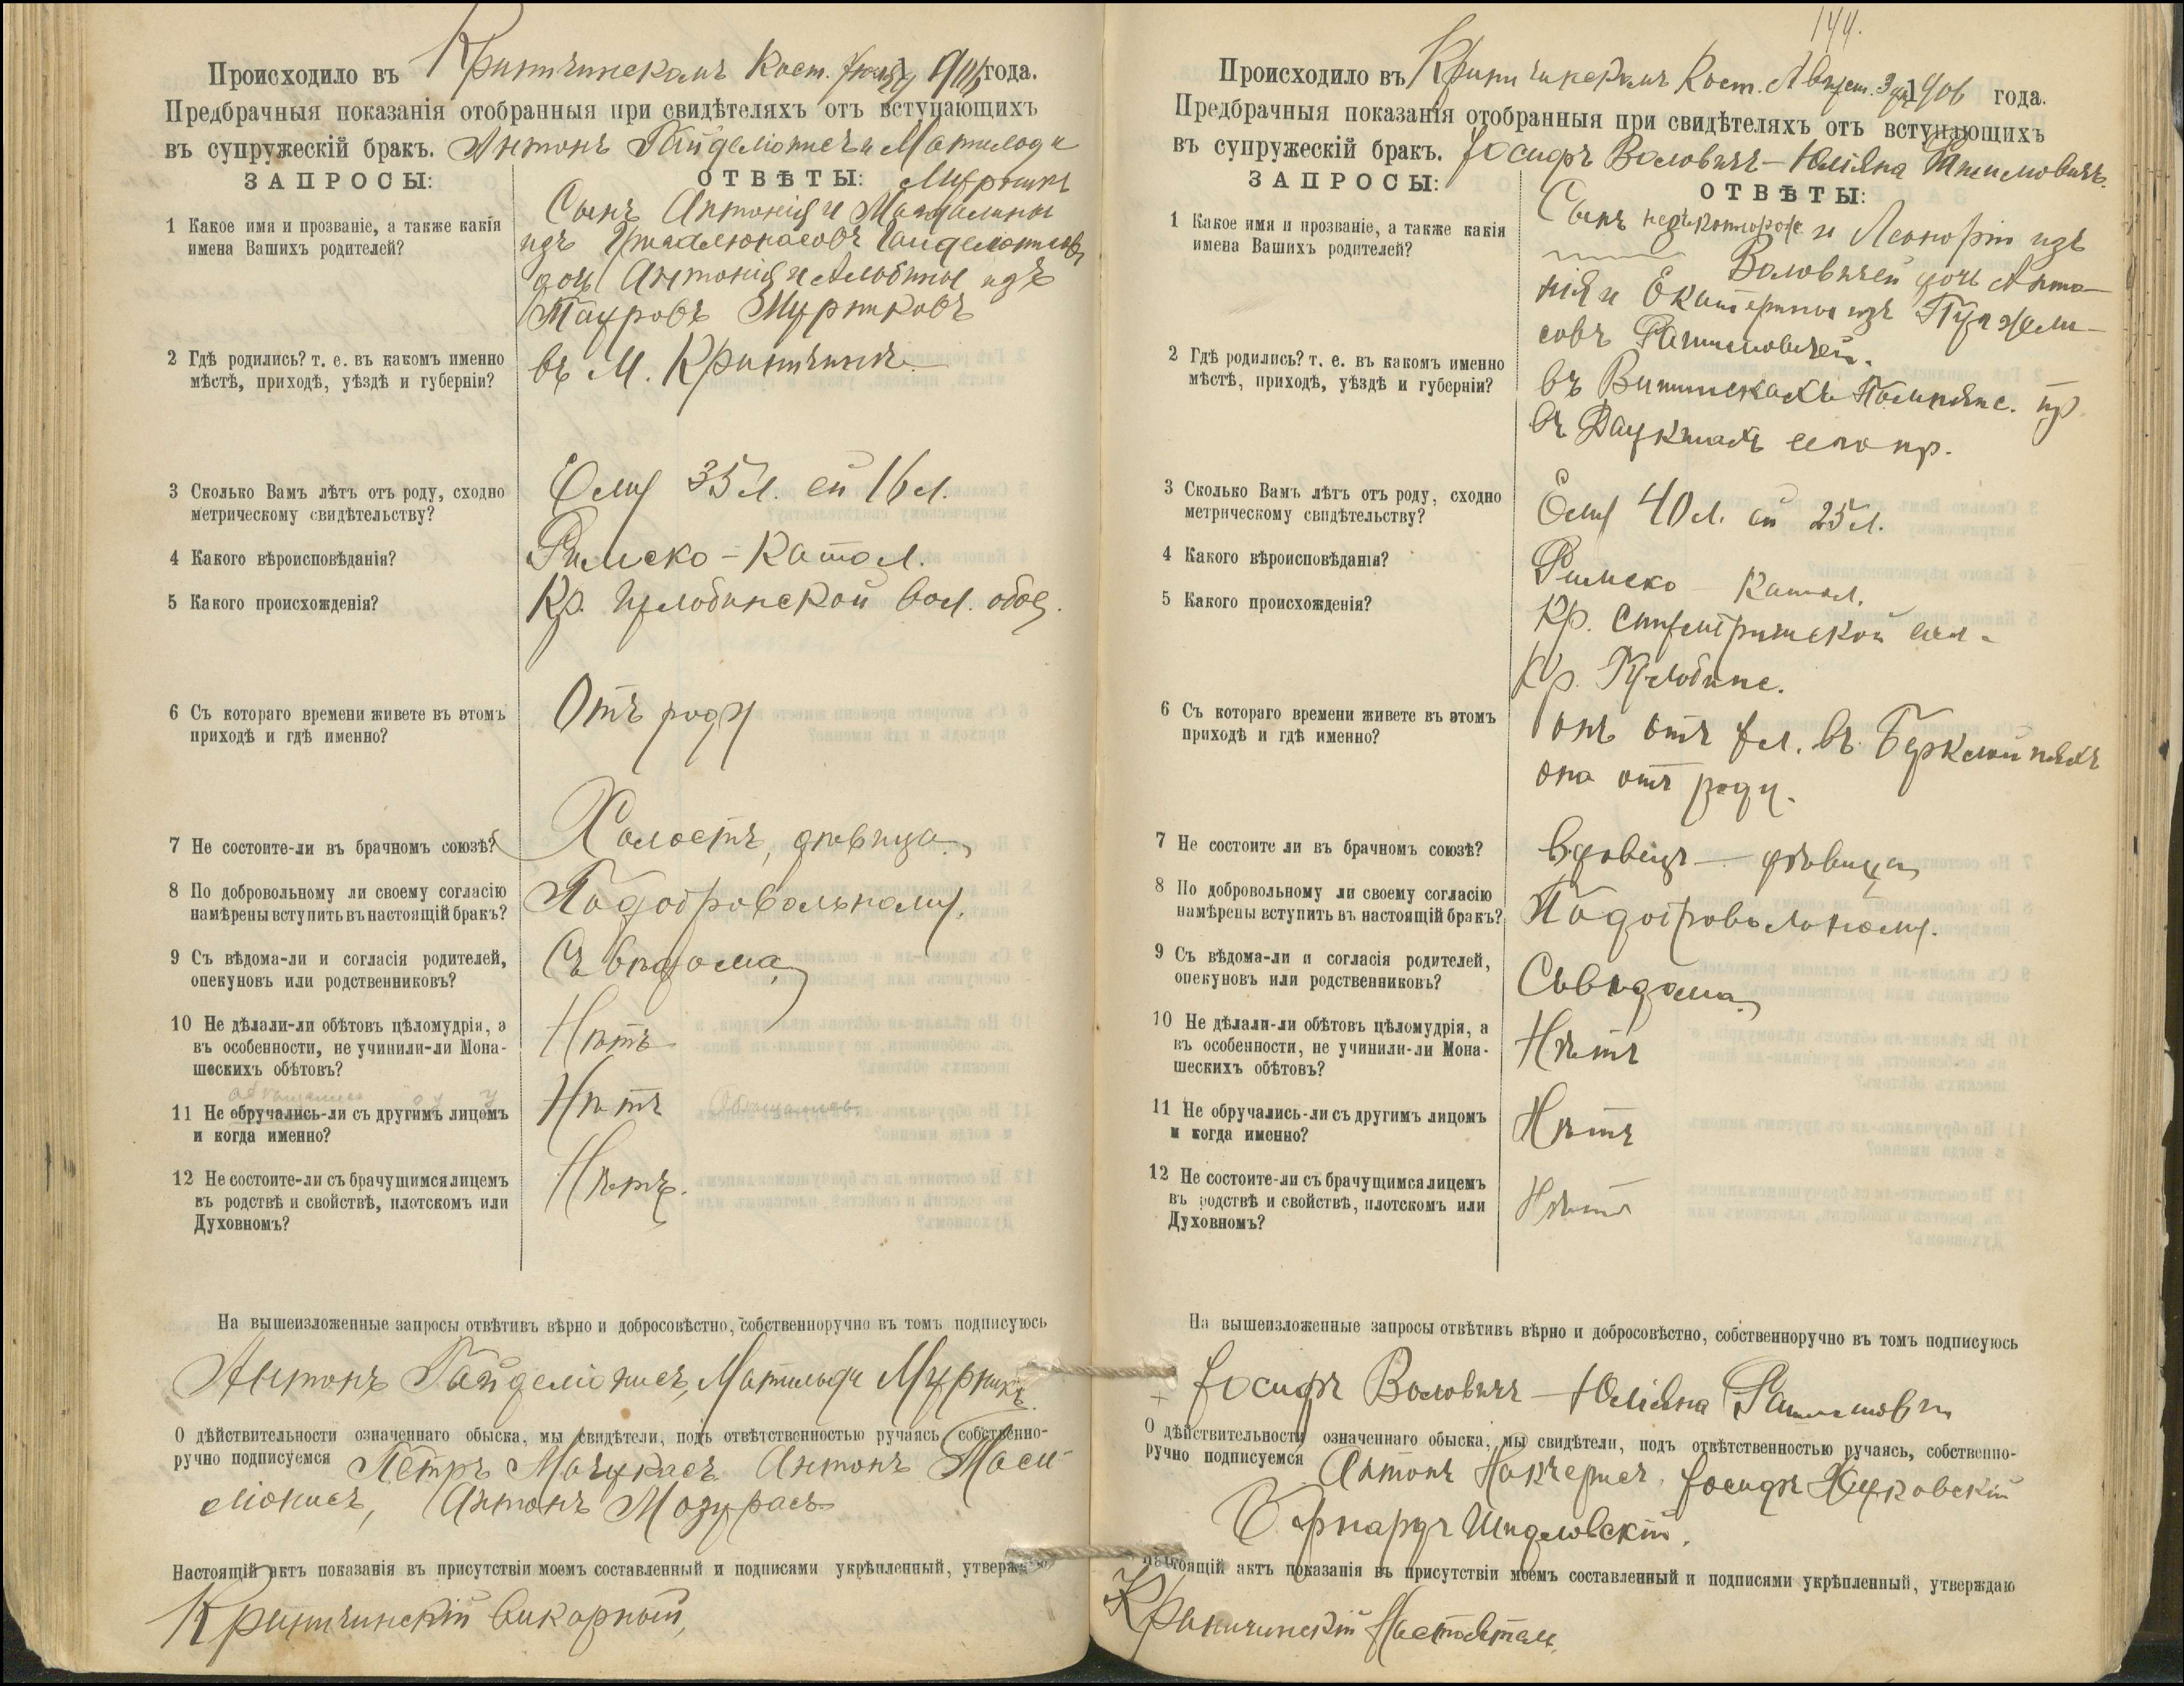 Происходило въ Кринчинскомъ Кост. 1906 года.
Предбрачныя показанія отобранныя при свидѣтеляхъ отъ вступающихъ
въ супружескій бракъ. Антонъ Гайделіонисъ и Матильда
ЗАПРОСЫ: ОТВѢТЫ:
1 Какое имя и прозваніе, а также какія
имена Вашихъ родителей?
Сынъ Антонія и Магдалины
изъ
дочь Антонія и Альбины изъ
2 Гдѣ родились? т. е. въ какомъ именно
мѣстѣ, приходѣ, уѣздѣ и губерніи?
въ М. Кринчинѣ
3 Сколько Вамъ лѣтъ отъ роду, сходно
метрическому свидѣтельству?
Ему 35 л. ей 16 л.
4 Какого вѣроисповѣданія?
Римско-Катол.
5 Какого происхожденія?
Кр. вол. обое.
6 Съ котораго времени живете въ этомъ
приходѣ и гдѣ именно?
Отъ роду
7 Не состоите-ли въ брачномъ союзѣ?
Холостъ, дѣвица
8 По добровольному ли своему согласію
намѣрены вступить въ настоящій бракъ?
По добровольному.
9 Съ вѣдома-ли и согласія родителей,
опекуновъ или родственниковъ?
Съ вѣдома
10 Не дѣлали-ли обѣтовъ цѣломудрія, а
въ особенности, не учинили-ли Мона-
шескихъ обѣтовъ?
Нѣтъ
11 Не обручались-ли съ другимъ лицомъ
и когда именно?
Нѣтъ
12 Не состоите-ли съ брачущимся лицемъ
въ родствѣ и свойствѣ, плотскомъ или
Духовномъ?
Нѣтъ.
На вышеизложенные запросы отвѣтивъ вѣрно и добросовѣстно, собственноручно въ томъ подписуюсь
Антонъ Гайделіонисъ, Матильда
О дѣйствительности означеннаго обыска, мы свидѣтели, подъ отвѣтственностью ручаясь собственно-
ручно подписуемся Петръ Антонъ
Антонъ Мозурасъ
Настоящій актъ показанія въ присутствіи моемъ составленный и подписами укрѣпленный, утверждаю
Кринчинскій викарный,
144.
Происходило въ Кринчинскомъ Кост. Август. 3 дня 1906 года.
Предбрачныя показанія отобранныя при свидѣтеляхъ отъ вступающихъ
въ супружескій бракъ. Іосифъ Воловичъ – Юліяна
ЗАПРОСЫ: ОТВѢТЫ:
1 Какое имя и прозваніе, а также какія
имена Вашихъ родителей?
Сынъ и Леоноры изъ
Воловичей дочь Анто-
нія и Екатерины изъ
2 Гдѣ родились? т. е. въ какомъ именно
мѣстѣ, приходѣ, уѣздѣ и губерніи?
въ
въ сего пр.
3 Сколько Вамъ лѣтъ отъ роду, сходно
метрическому свидѣтельству?
Ему 40 л. ей 25 л.
4 Какого вѣроисповѣданія?
Римско Катол.
5 Какого происхожденія?
Кр.
Кр.
6 Съ котораго времени живете въ этомъ
приходѣ и гдѣ именно?
онъ отъ л. въ
она отъ роду.
7 Не состоите ли въ брачномъ союзѣ?
Вдовецъ – дѣвица
8 По добровольному ли своему согласію
намѣрены вступить въ настоящій бракъ?
По добровольному.
9 Съ вѣдома-ли и согласія родителей,
опекуновъ или родственниковъ?
Съ вѣдома
10 Не дѣлали-ли обѣтовъ цѣломудрія, а
въ особенности, не учинили-ли Мона-
шескихъ обѣтовъ?
Нѣтъ
11 Не обручались-ли съ другимъ лицомъ
и когда именно?
Нѣтъ
12 Не состоите-ли съ брачущимся лицемъ
въ родствѣ и свойствѣ, плотскомъ или
Духовномъ?
Нѣтъ
На вышеизложенные запросы отвѣтивъ вѣрно и добросовѣстно, собственноручно въ томъ подписуюсь
Іосифъ Воловичъ – Юліяна
О дѣйствительности означеннаго обыска, мы свидѣтели, подъ отвѣтственностью ручаясь, собственно-
ручно подписуемся Антонъ Іосифъ
Бернардъ Шидловскій.
Настоящій актъ показанія въ присутствіи моемъ составленный и подписями укрѣпленный, утверждаю
Кринчинскій Настоятель